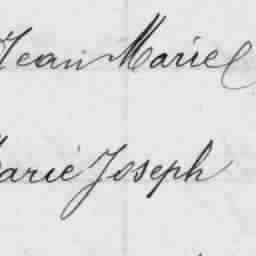 Jean Marie
Marie Joseph